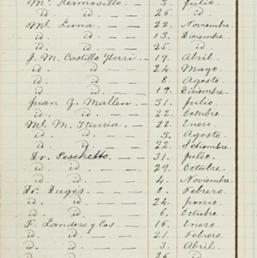 Ml. Hermosillo — 5. Julio.
id. id. — 26. id.
Ml. Luna — 22. Noviembre
id. id. — 13. Diciembre
id. id. — 25. id
J. M. Castillo — 19. Abril.
id. id. — 24. Mayo.
id. id. — 8. Agosto
id. id. — 19. Diciembre.
Juan G. Matlen — 31. Julio.
id. id. — 22. Octubre.
Ml. M. Iturria — 22. Enero
id. id. — 3. Agosto.
id. id. — 22. Setiembre.
Dr. Peschetto — 31. Julio.
id. — 29. Octubre.
id. — 4. Noviembre.
Dr. Duges — 8. Febrero.
id. id. — 24. Junio.
id. id. — 6. Octubre.
F. Landero y Cos — 16. Enero
id. id. — 21. Febrero.
id. id. — 3. Abril.
id. id. — 26. id